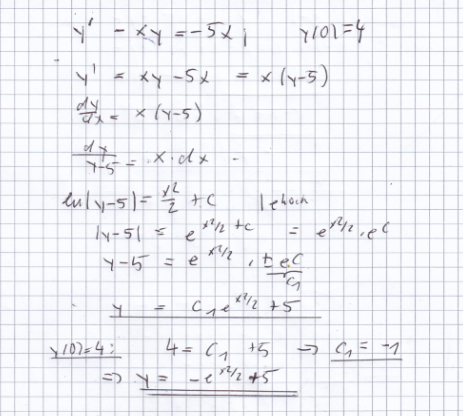 y' - xy = -5x ; y(0)=4
y' = xy - 5x = x(y-5)
dy/dx = x(y-5)
dy/y-5 = x·dx
ln|y-5| = x²/2 + c | e hoch
|y-5| = e^(x²/2 + c) = e^(x²/2) · e^c
y-5 = e^(x²/2) · ± e^c
c₁
y = c₁ e^(x²/2) + 5
y(0)=4: 4 = c₁ + 5 ⇒ c₁ = -1
⇒ y = -e^(x²/2) + 5